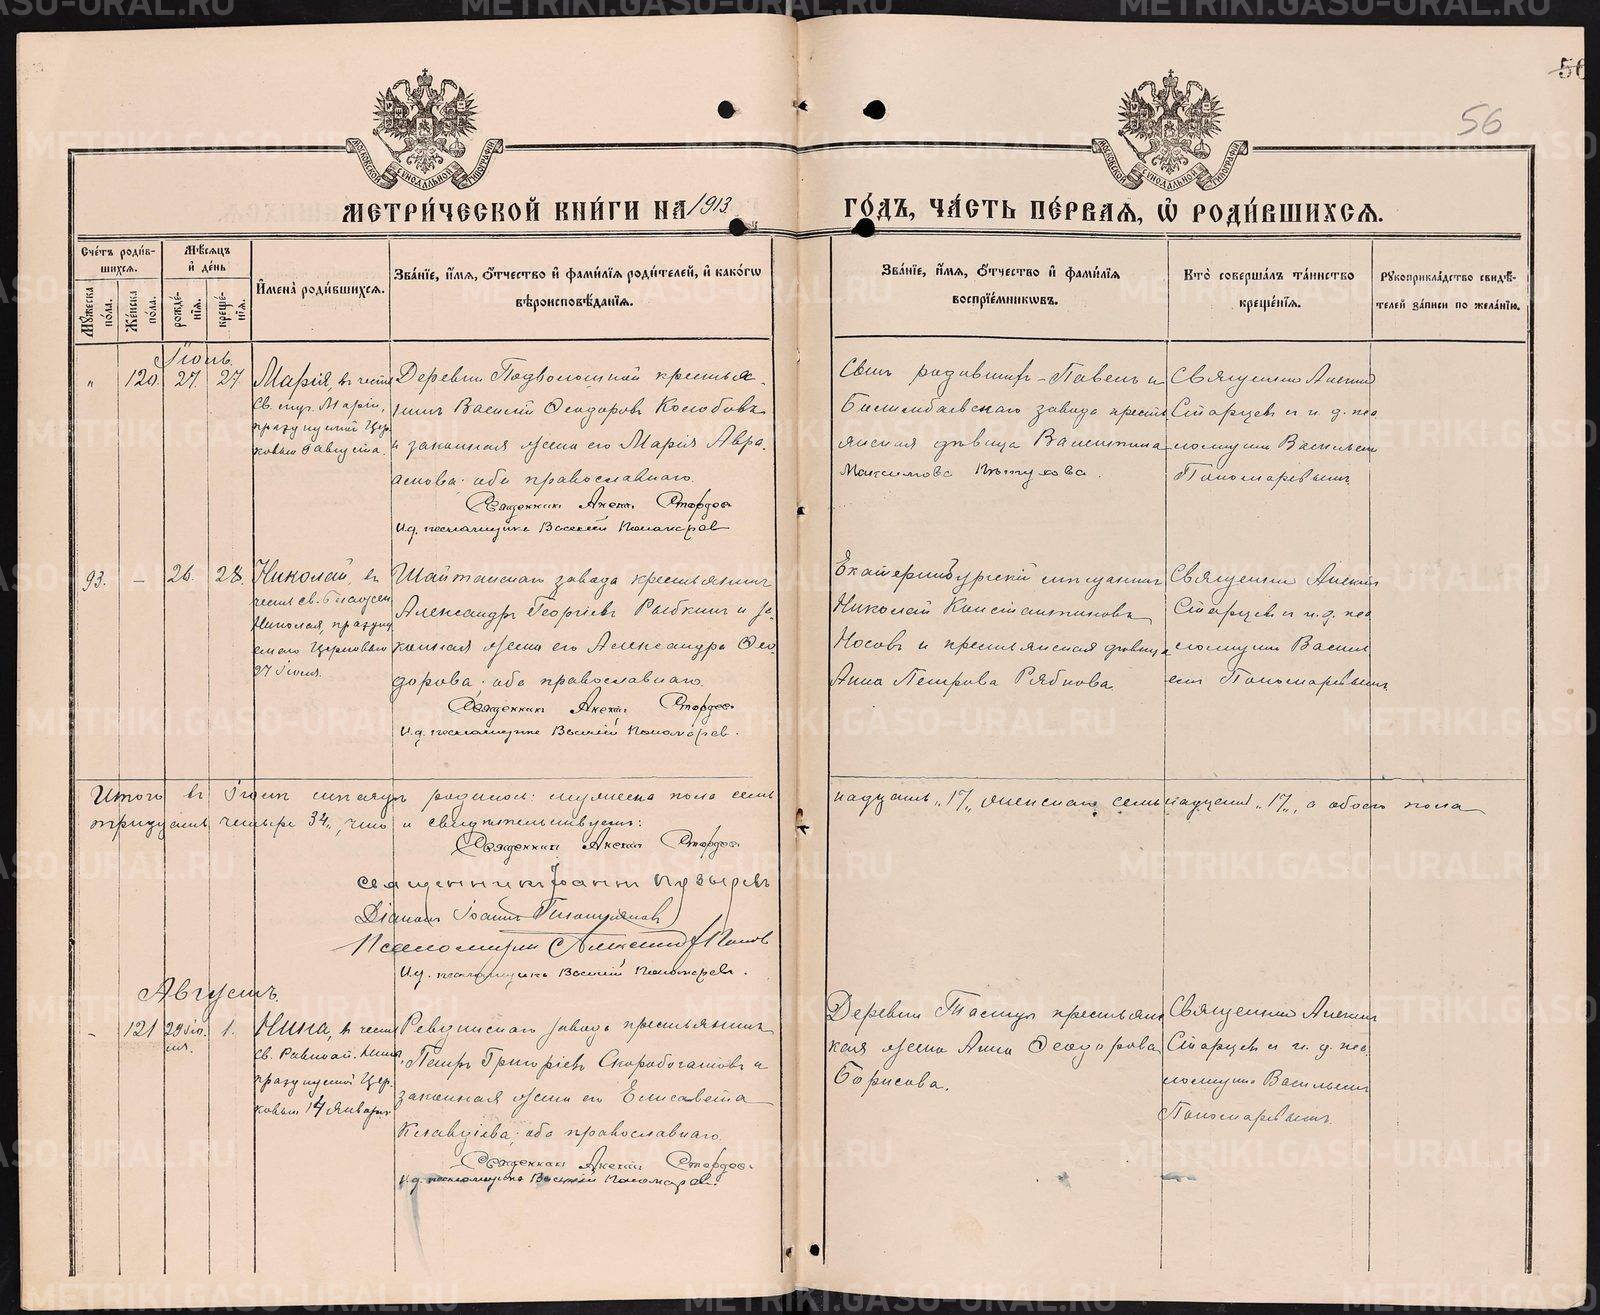 56
56
МОСКОВСКОЙ СѴНОДАЛЬНОЙ ТИПОГРАФІИ
МОСКОВСКОЙ СѴНОДАЛЬНОЙ ТИПОГРАФІИ
МЕТРИ́ЧЕСКОЙ КНИ́ГИ НА 1913 ГО́ДЪ, ЧА́СТЬ ПЕ́РВАЯ, Ѡ҆ РОДИ́ВШИХСЯ.
Сче́тъ роди́вшихся.
Мꙋ́жеска по́ла.
Же́нска по́ла.
Мѣ́сяцъ и҆ де́нь
рожде́нїя.
креще́нїя.
И҆мена̀ роди́вшихся.
Зва́нїе, и҆́мя, ѻ҆́тчество и҆ фами́лїя роди́телей, и҆ како́гѡ вѣроисповѣ́данїя.
Зва́нїе, и҆́мя, ѻ҆́тчество и҆ фами́лїя воспрїе́мникѡвъ.
Кто̀ соверша́лъ та́инство креще́нїя.
Рꙋкоприкла́дство свидѣ́телей за́писи по жела́нїю.
Іюль.
" 120 27. 27.
Марія, въ честь
Св. мүр. Маріи,
празднуемой Цер
ковью 9 августа.
Деревни Подволошной крестья-
нинъ Василій Ѳеодоровъ Колобовъ
и законная жена его Марія Авра-
амова; оба православнаго.
Священникъ Алексій Старцевъ
И.д. псаломщика Василій Пономаревъ
Сынъ родившихъ Павелъ и
Билимбаевскаго завода кресть
янская дѣвица Валентина
Максимова Пѣтухова.
Священникъ Алексій
Старцевъ съ и. д. пса
ломщика Василіемъ
Пономаревымъ.
93. — 26. 28.
Николай, въ
честь св. Блажен
Николая, праздну
емаго Церковью
27 Іюля.
Шайтанскаго завода крестьянинъ
Александръ Георгіевъ Рыбкинъ и за-
конная жена его Александра Ѳео-
дорова; оба православнаго.
Священникъ Алексій Старцевъ
И.д. псаломщика Василій Пономаревъ.
Екатеринбургскій мѣщанинъ
Николай Константиновъ
Носовъ и крестьянская дѣвица
Анна Петрова Рябкова
Священникъ Алексій
Старцевъ съ и. д. пса
ломщика Васили
емъ Пономаревымъ.
Итого въ Іюлѣ мѣсяцѣ родилось: мужеска пола сем надцать "17", женскаго семнадцать "17", а обоего пола
тридцать четыре 34", что и свидѣтельствуемъ:
Священникъ Алексій Старцевъ
Священникъ Іоаннъ Пузыревъ
Діаконъ Іоаннъ
Псаломщикъ Александръ Поповъ
И.д. псаломщика Василій Пономаревъ.
Августъ.
- 121 29 Іюля. 1.
Нина, въ честь
Св. Равноап. Нины
празднуемой Цер
ковью 14 Января
Ревдинскаго завода крестьянинъ
Петръ Григоріевъ Скоробогатовъ и
законная жена его Елисавета
Клавдіева; оба православнаго.
Священникъ Алексій Старцевъ
И.д. псаломщика Василій Пономаревъ.
Деревни Талицы крестьян
ская жена Анна Ѳеодорова
Борисова.
Священникъ Алексій
Старцевъ съ и. д. пса
ломщика Василіемъ
Пономаревымъ.
METRIKI.GASO-URAL.RU